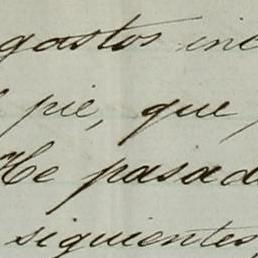 gastos in
pie, que
He pasad
siguientes,